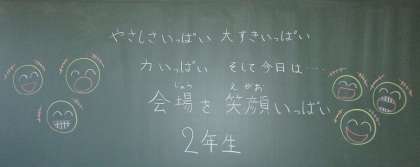 やさしさいっぱい 大すきいっぱい
力いっぱい そして今日は……
会場を 笑顔いっぱい
2年生